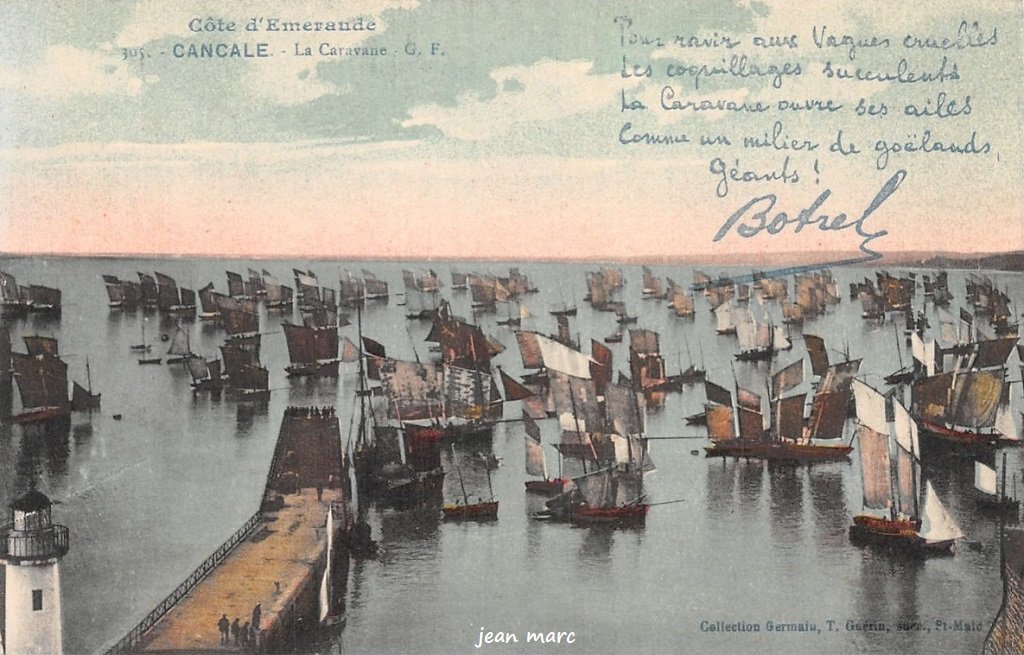 Côte d'Emeraude
305. - CANCALE. - La Caravane - G. F.
Pour ravir aux Vagues cruelles
Les coquillages succulents
La Caravane ouvre ses ailes
Comme un milier de goëlands,
Géants !
Botrel
Collection Germain, T. Guérin, succ., St-Malo
jean marc